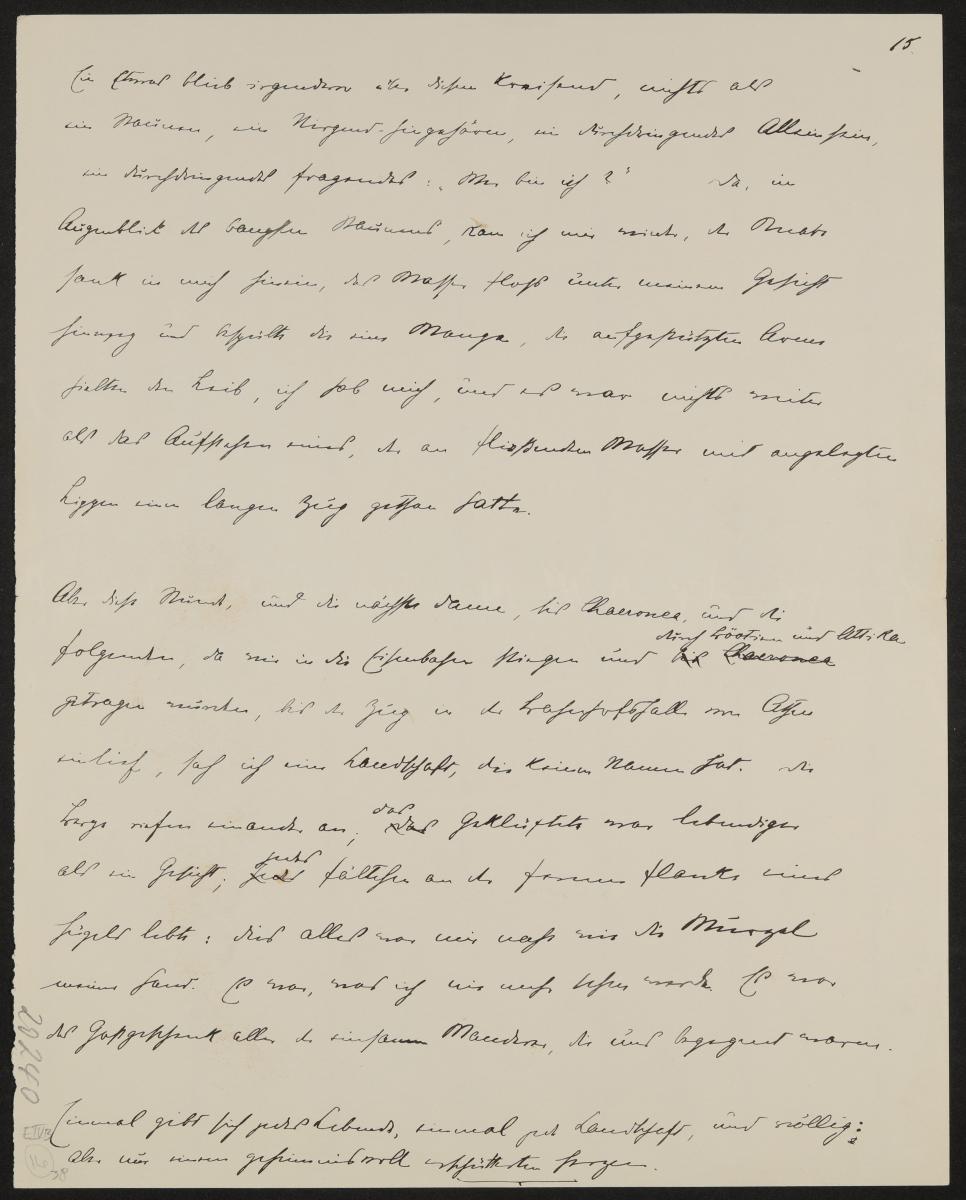 15.
Ein Etwas blieb irgendwo über diesem Kreisend, nichts als
ein Staunen, ein Nirgend-hingehören, ein durchdringendes Alleinsein,
ein durchdringendes fragendes: „Wer bin ich?" Da, im
Augenblick des bangsten Staunens, kam ich mir wieder, der Knabe
sank in mich hinein, das Wasser floss unter meinem Gesicht
hinweg und bespülte die eine Wange, die aufgestützten Arme
hielten den Leib, ich hob mich, und es war nichts weiter
als das Aufstehen eines, der an fließendem Wasser mit angelegten
Lippen einen langen Zug gethan hatte.
Aber diese Stunde, und die nächste dann, bis Chaeronea, und die
durch Böotien und Attika
folgenden, da wir in die Eisenbahn stiegen und bis Chaeronea
getragen wurden, bis der Zug in der Bahnhofshalle von Athen
einlief, sah ich eine Landschaft, die keinen Namen hat. Die
Berge riefen einander an; das Geklüftete war lebendiger
als ein Gesicht; jedes Fältchen an der fernen Flanke eines
Hügels lebte: dies alles war mir nahe wie die Wurzel
meiner Hand. Es war, was ich nie mehr sehen werde. Es war
das Gastgeschenk aller der einsamen Wanderer, die uns begegnet waren.
Einmal gibt sich jedes Lebende, einmal jede Landschaft, und völlig:
aber nur einem geheimnisvoll erschütterten Herzen.
20240
EIVB
16
38